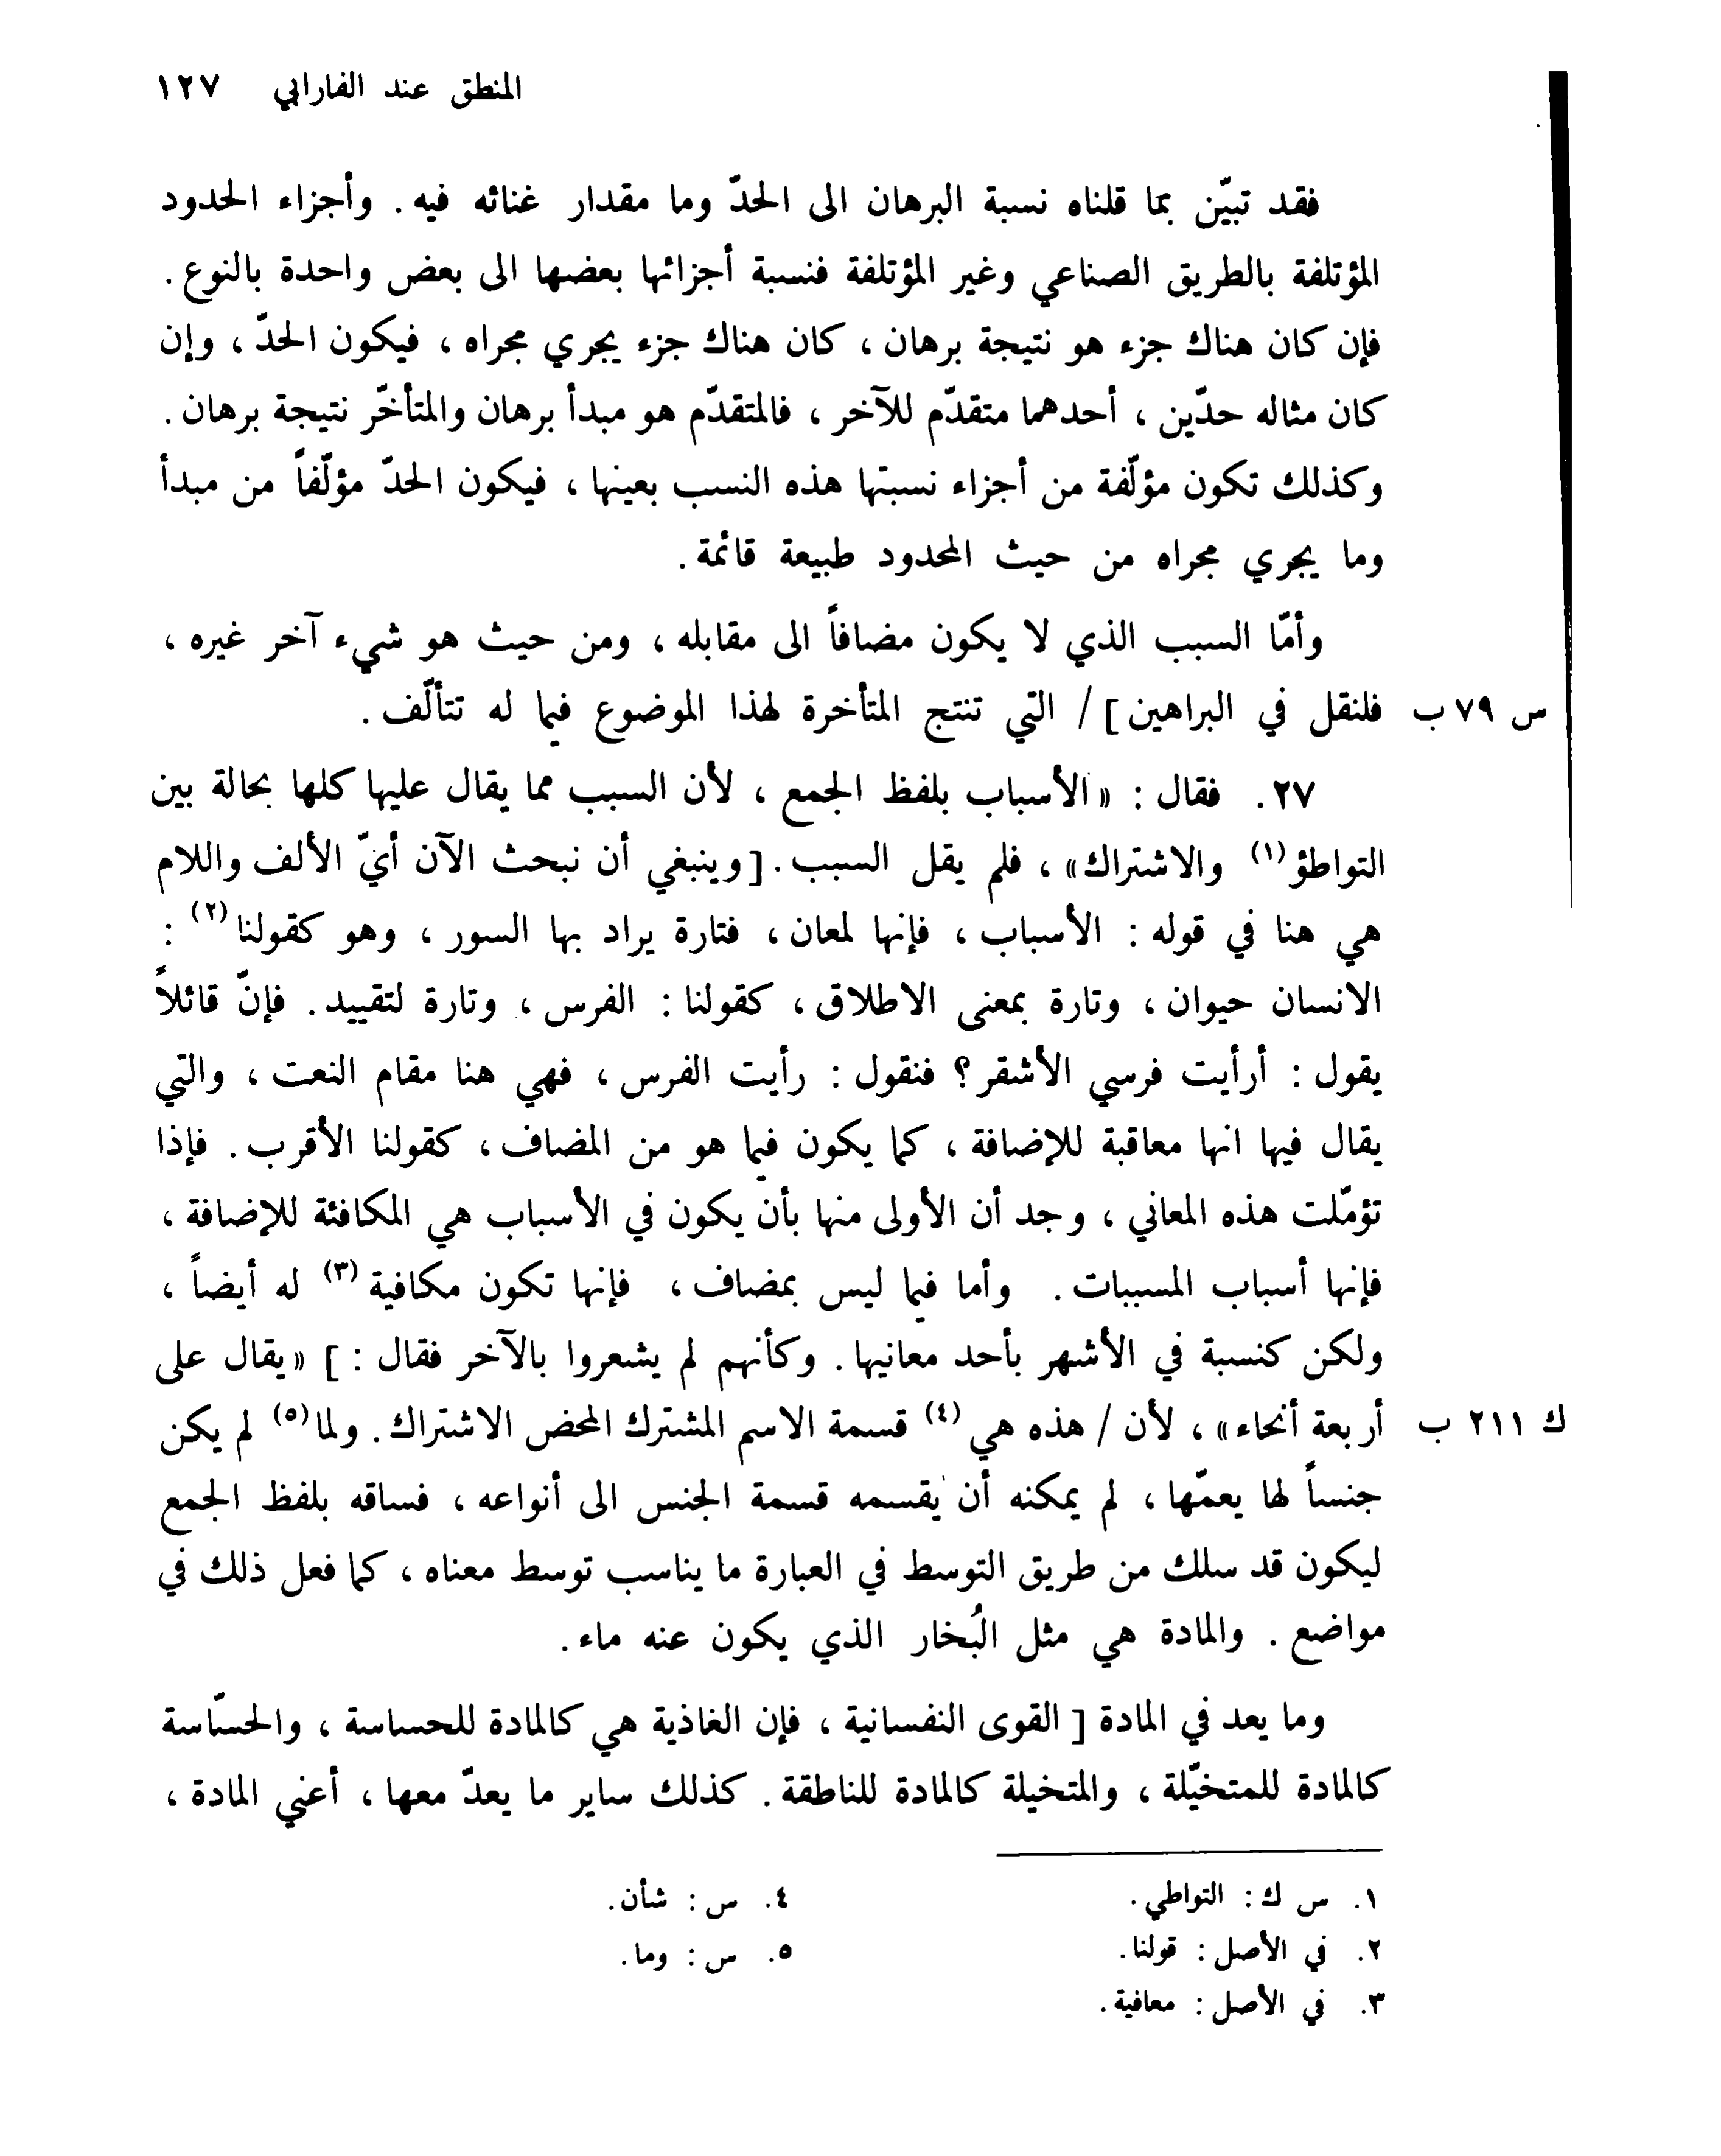 المنطق عند الفارابي ١٢٧
فقد تبيّن بما قلناه نسبة البرهان الى الحدّ وما مقدار غنائه فيه . وأجزاء الحدود
المؤتلفة بالطريق الصناعي وغير المؤتلفة فنسبة أجزائها بعضها الى بعض واحدة بالنوع .
فإن كان هناك جزء هو نتيجة برهان ، كان هناك جزء يجري مجراه ، فيكون الحدّ ، وإن
كان مثاله حدّين ، أحدهما متقدّم للآخر ، فالمتقدّم هو مبدأ برهان والمتأخّر نتيجة برهان .
وكذلك تكون مؤلّفة من أجزاء نسبتها هذه النسب بعينها ، فيكون الحدّ مؤلّفاً من مبدأ
وما يجري مجراه من حيث المحدود طبيعة قائمة .
وأمّا السبب الذي لا يكون مضافاً الى مقابله ، ومن حيث هو شيء آخر غيره ،
س ٧٩ ب فلنقل في البراهين ] / التي تنتج المتأخرة لهذا الموضوع فيما له تتألّف .
٢٧. فقال : « الأسباب بلفظ الجمع ، لأن السبب مما يقال عليها كلها بحالة بين
التواطؤ (١) والاشتراك » ، فلم يقل السبب . [ وينبغي أن نبحث الآن أيّ الألف واللام
هي هنا في قوله : الأسباب ، فإنها لمعان ، فتارة يراد بها السور ، وهو كقولنا (٢) :
الانسان حيوان ، وتارة بمعنى الاطلاق ، كقولنا : الفرس ، وتارة لتقييد . فإنّ قائلاً
يقول : أرأيت فرسي الأشقر ؟ فنقول : رأيت الفرس ، فهي هنا مقام النعت ، والتي
يقال فيها انها معاقبة للإضافة ، كما يكون فيما هو من المضاف ، كقولنا الأقرب . فإذا
تؤمّلت هذه المعاني ، وجد أن الأولى منها بأن يكون في الأسباب هي المكافئة للإضافة ،
فإنها أسباب المسببات . وأما فيما ليس بمضاف ، فإنها تكون مكافية (٣) له أيضاً ،
ولكن كنسبة في الأشهر بأحد معانيها . وكأنهم لم يشعروا بالآخر فقال : ] « يقال على
ك ٢١١ ب أربعة أنحاء » ، لأن / هذه هي (٤) قسمة الاسم المشترك المحض الاشتراك . ولما (٥) لم يكن
جنساً لها يعمّها ، لم يمكنه أن يقسمه قسمة الجنس الى أنواعه ، فساقه بلفظ الجمع
ليكون قد سلك من طريق التوسط في العبارة ما يناسب توسط معناه ، كما فعل ذلك في
مواضع . والمادة هي مثل البُخار الذي يكون عنه ماء .
وما يعد في المادة [ القوى النفسانية ، فإن الغاذية هي كالمادة للحساسة ، والحسّاسة
كالمادة للمتخيّلة ، والمتخيلة كالمادة للناطقة . كذلك ساير ما يعدّ معها ، أعني المادة ،
١. س ك : التواطي .
٢. في الأصل : قولنا .
٣. في الأصل : معافية .
٤. س : شأن .
٥. س : وما .